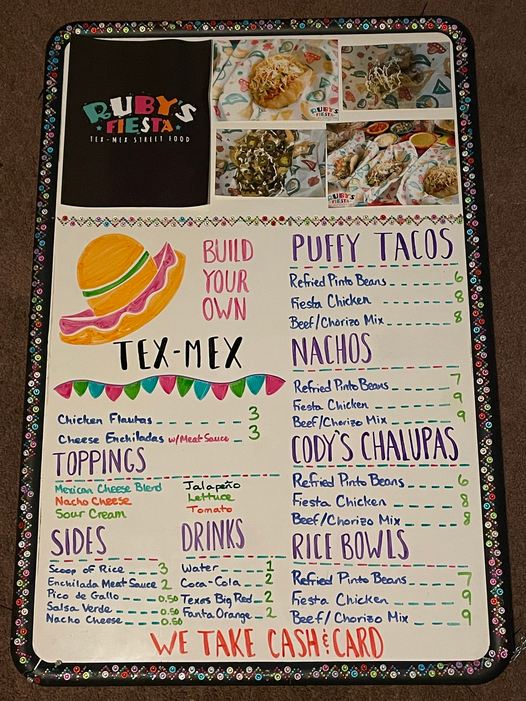 RUBY'S
FIESTA
TEX-MEX STREET FOOD
RUBY'S
FIESTA
RUBY'S
FIESTA
BUILD
YOUR
OWN
TEX-MEX
Chicken Flautas 3
Cheese Enchiladas w/Meat Sauce 3
TOPPINGS
Mexican Cheese Blend Jalapeño
Nacho Cheese Lettuce
Sour Cream Tomato
SIDES
Scoop of Rice 3
Enchilada Meat Sauce 2
Pico de Gallo 0.50
Salsa Verde 0.50
Nacho Cheese 0.50
DRINKS
Water 1
Coca-Cola 2
Texas Big Red 2
Fanta Orange 2
PUFFY TACOS
Refried Pinto Beans 6
Fiesta Chicken 8
Beef/Chorizo Mix 8
NACHOS
Refried Pinto Beans 7
Fiesta Chicken 9
Beef/Chorizo Mix 9
CODY'S CHALUPAS
Refried Pinto Beans 6
Fiesta Chicken 8
Beef/Chorizo Mix 8
RICE BOWLS
Refried Pinto Beans 7
Fiesta Chicken 9
Beef/Chorizo Mix 9
WE TAKE CASH & CARD